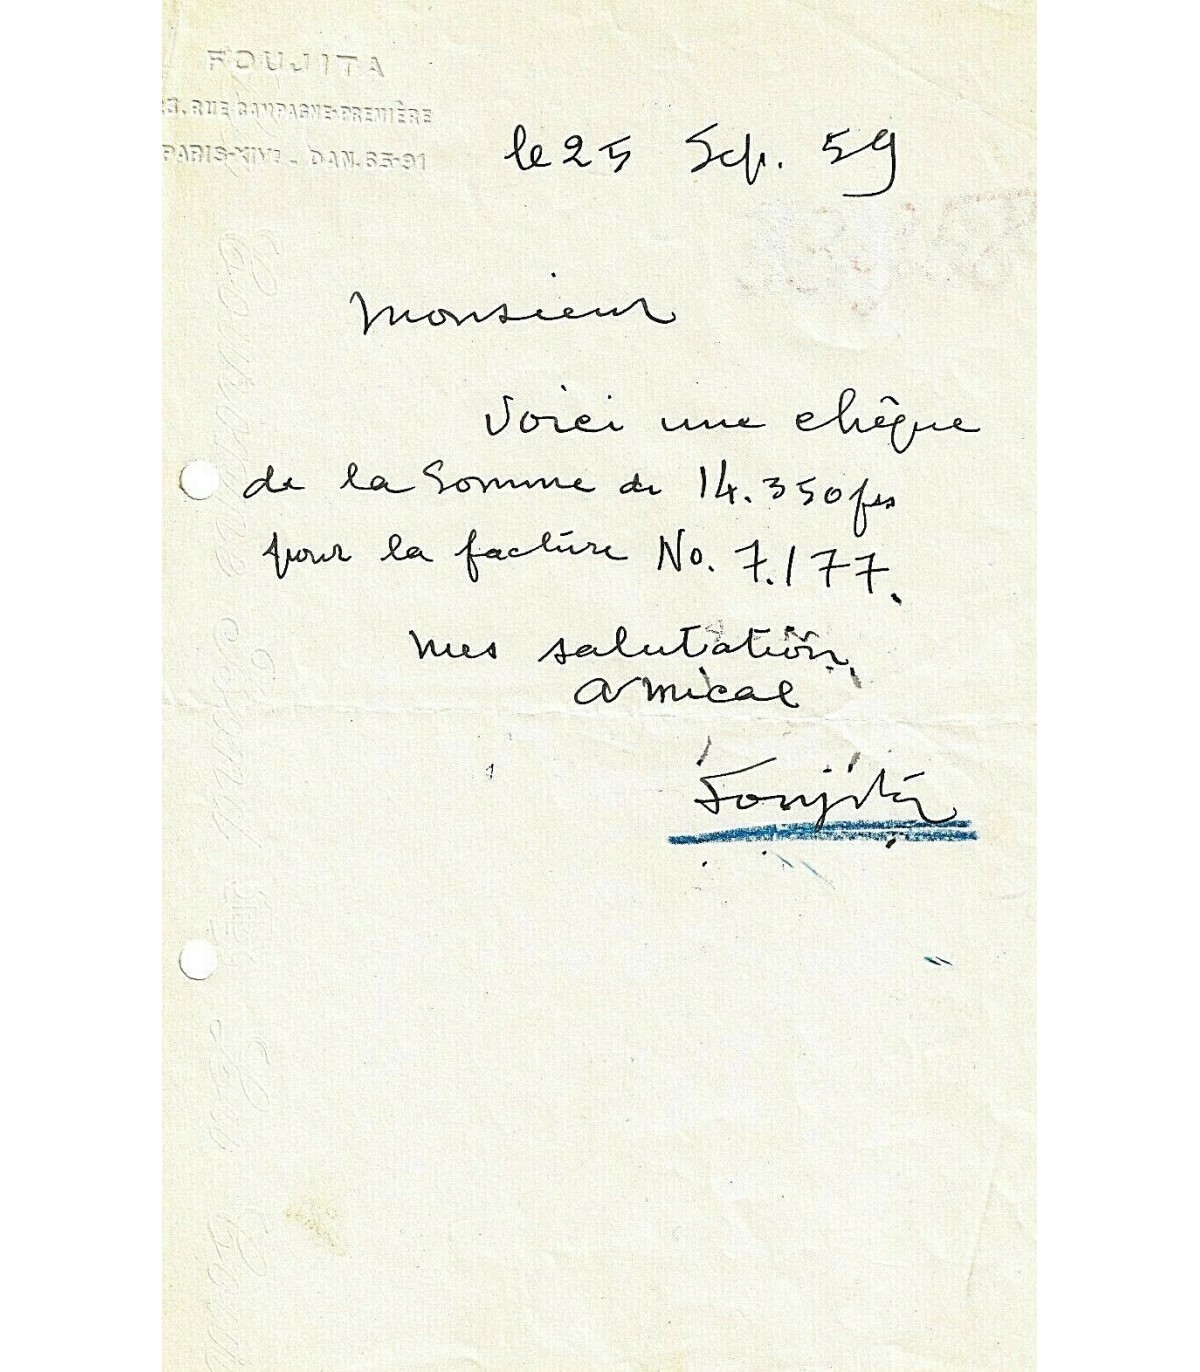 FOUJITA
23, RUE CAMPAGNE-PREMIÈRE
PARIS-XIVᵉ - DAN. 65-91
le 25 Sep. 59
Monsieur
Voici une chêque
de la Somme de 14.350 frs
pour la facture No. 7.177.
mes salutation
amical
Foujita